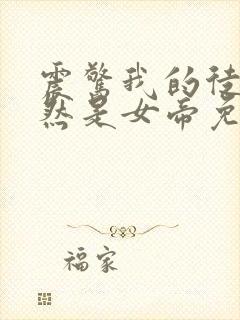 震惊我的徒
然是女帝免
福家